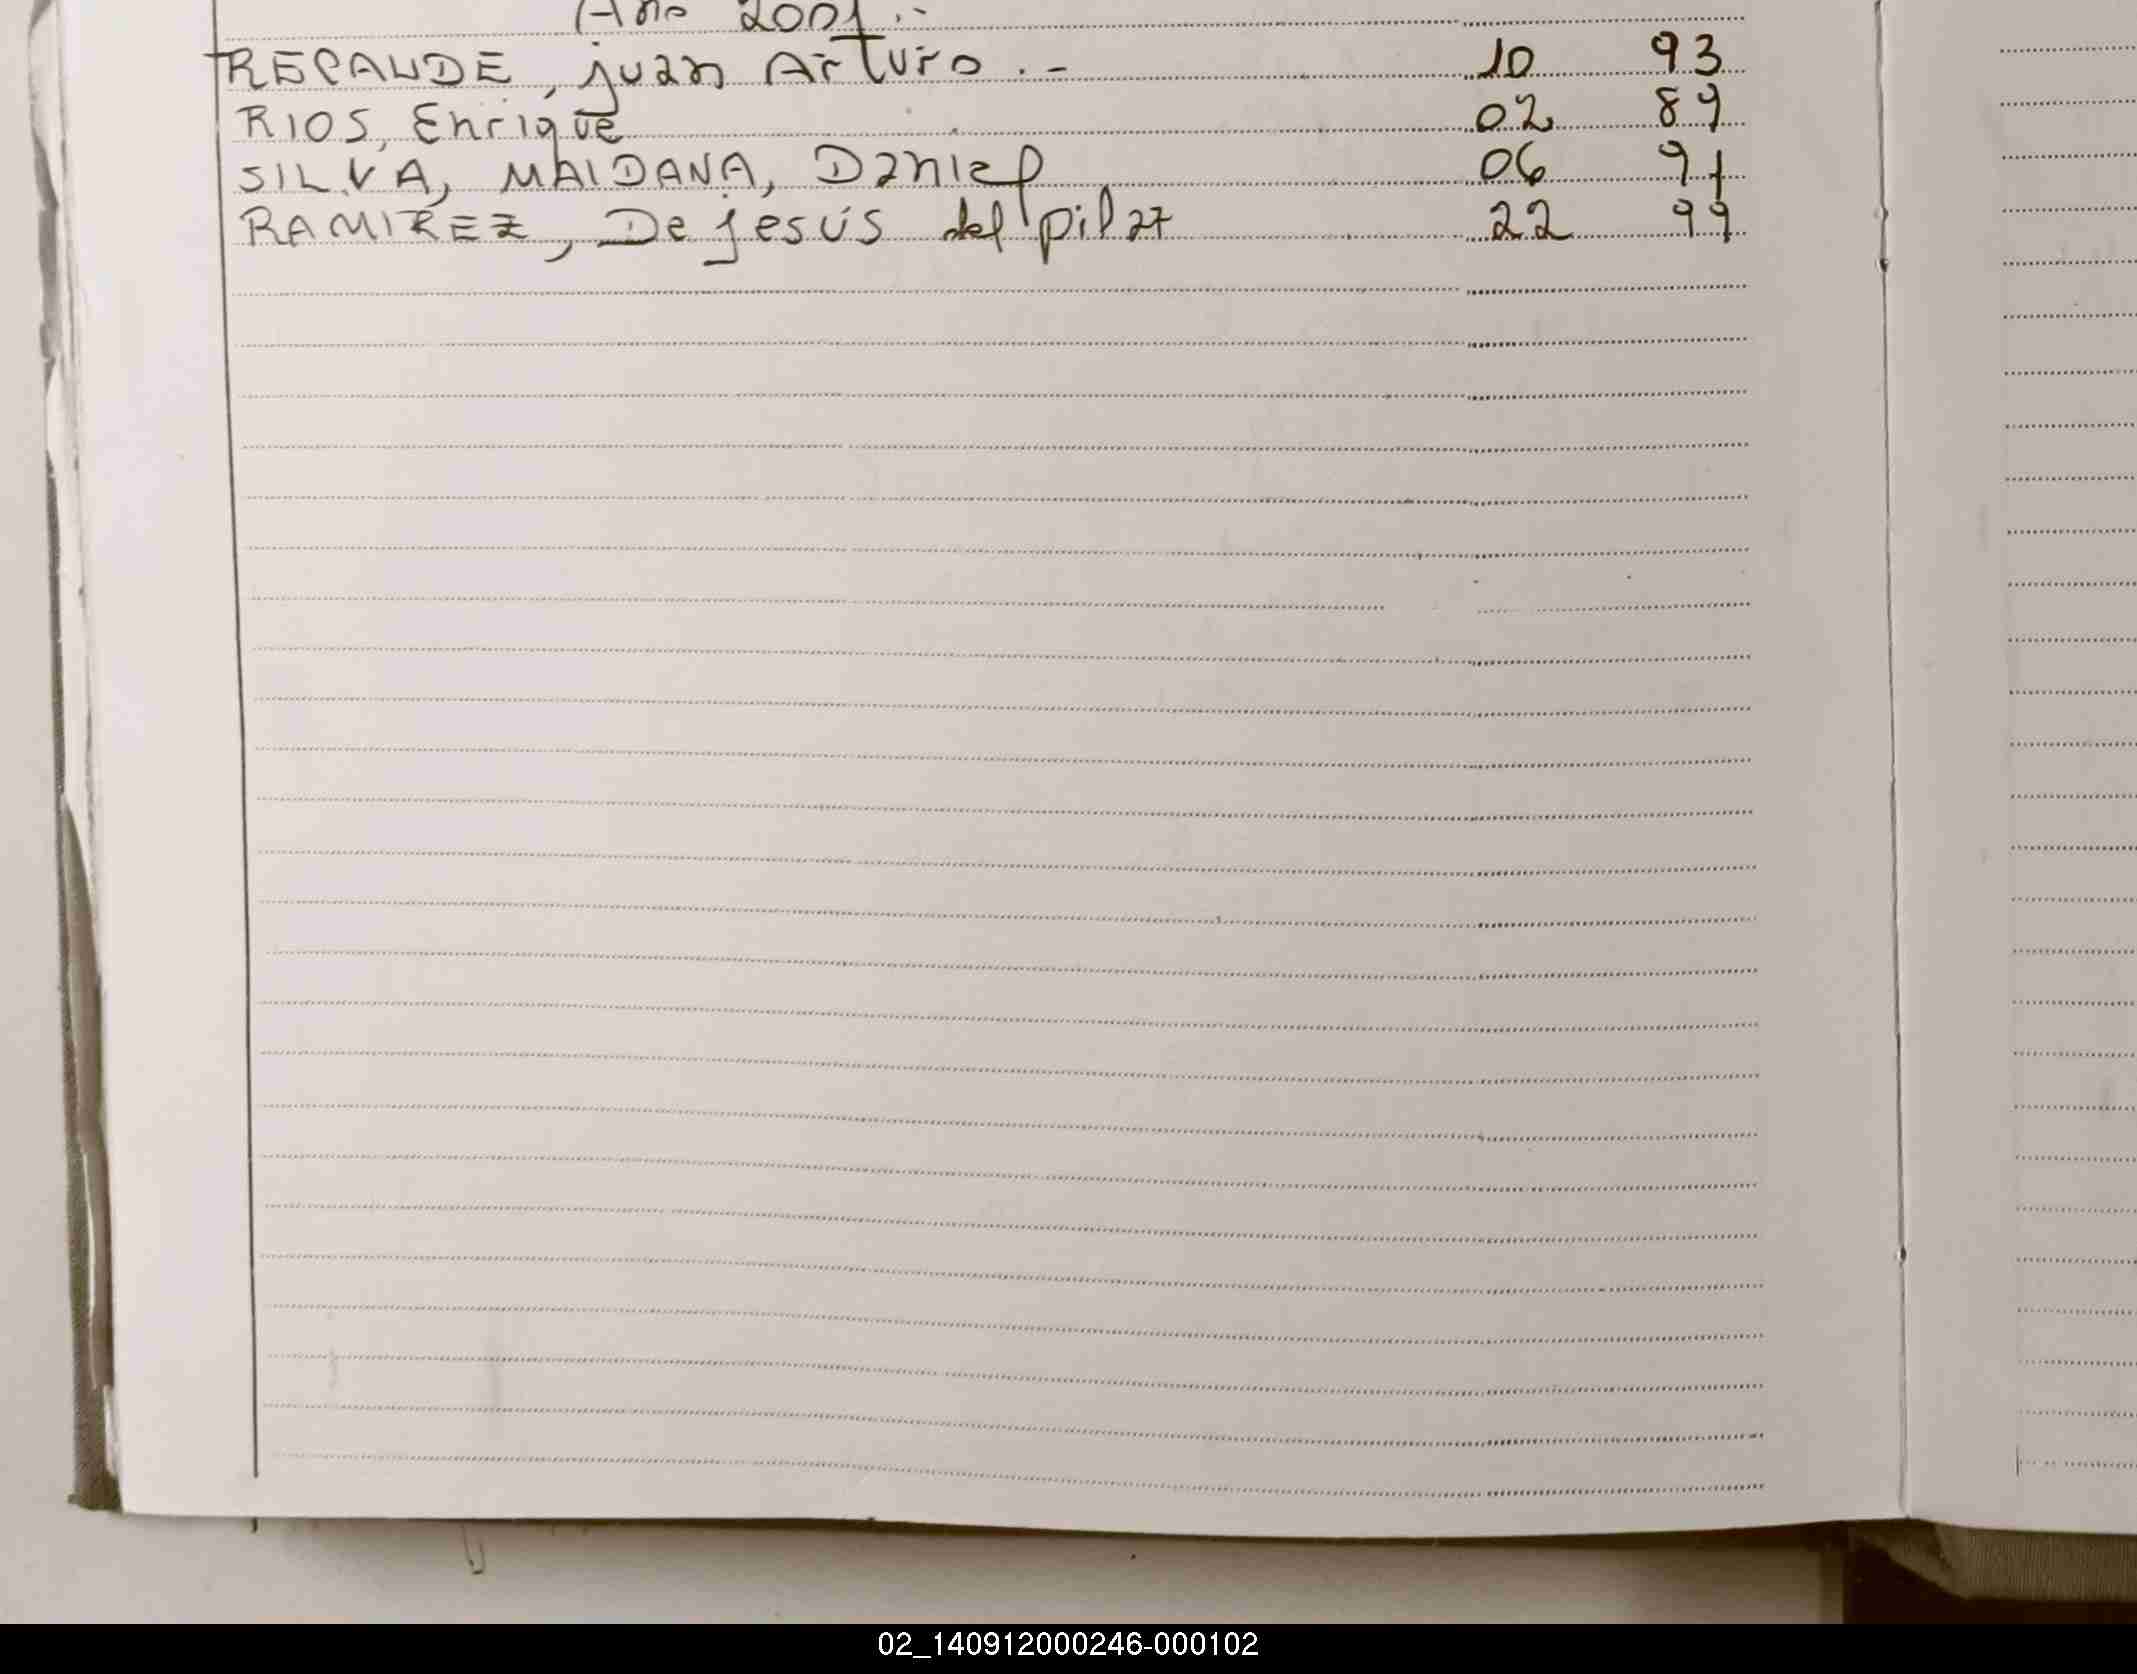 Año 2001.-
RECALDE, Juan Arturo.- 10 93
RIOS, Enrique 02 89
SILVA, MAIDANA, Daniel 06 91
RAMIREZ, De jesús del pilar 22 99
02_140912000246-000102